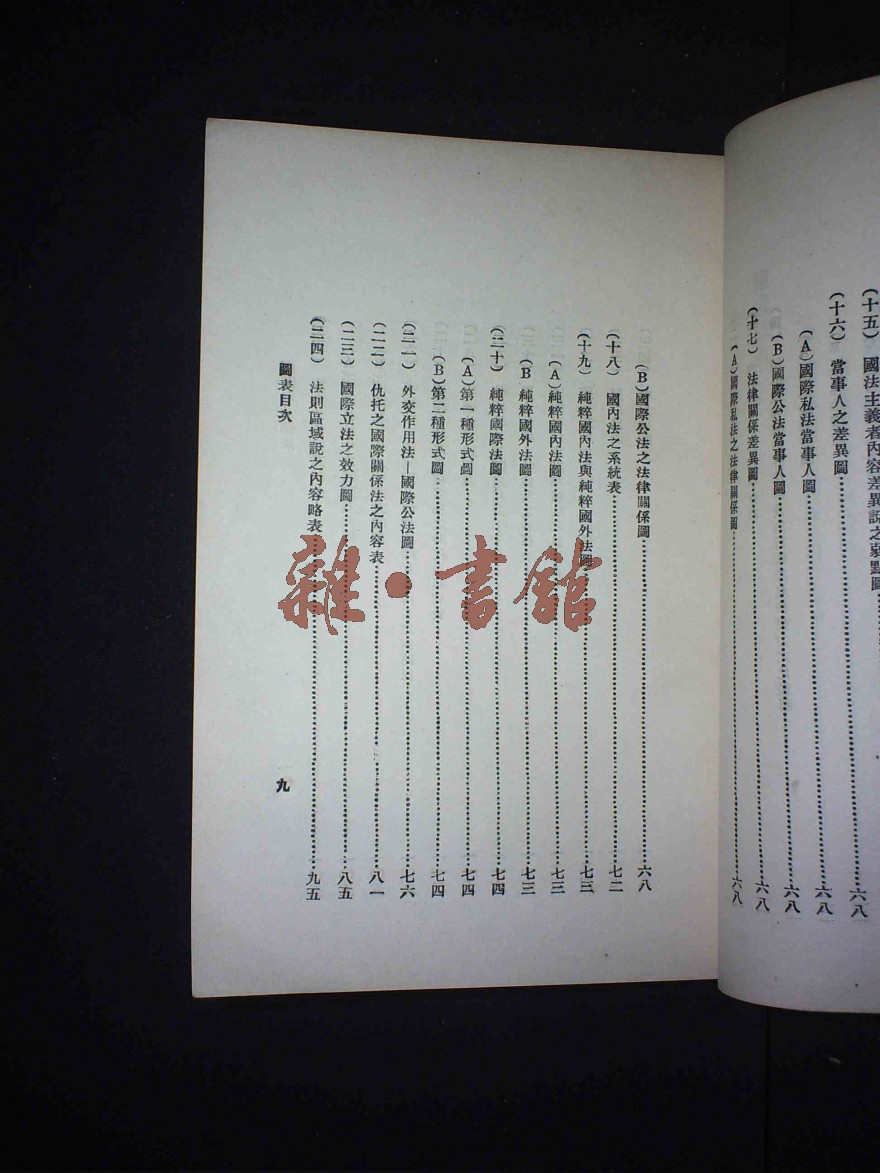 （十五）國法主義者內容差異說之弱點圖……六八
（十六）當事人之差異圖……六八
（A）國際私法當事人圖……六八
（B）國際公法當事人圖……六八
（十七）法律關係差異圖……六八
（A）國際私法之法律關係圖……六八
（B）國際公法之法律關係圖……六八
（十八）國內法之系統表……七二
（十九）純粹國內法與純粹國外法圖……七三
（A）純粹國內法圖……七三
（B）純粹國外法圖……七三
（二十）純粹國際法圖……七四
（A）第一種形式圖……七四
（B）第二種形式圖……七四
（二一）外交作用法—國際公法圖……七六
（二二）仇托之國際關係法之內容表……八一
（二三）國際立法之效力圖……八五
（二四）法則區域說之內容略表……九五
圖表目次
九
雜·書館